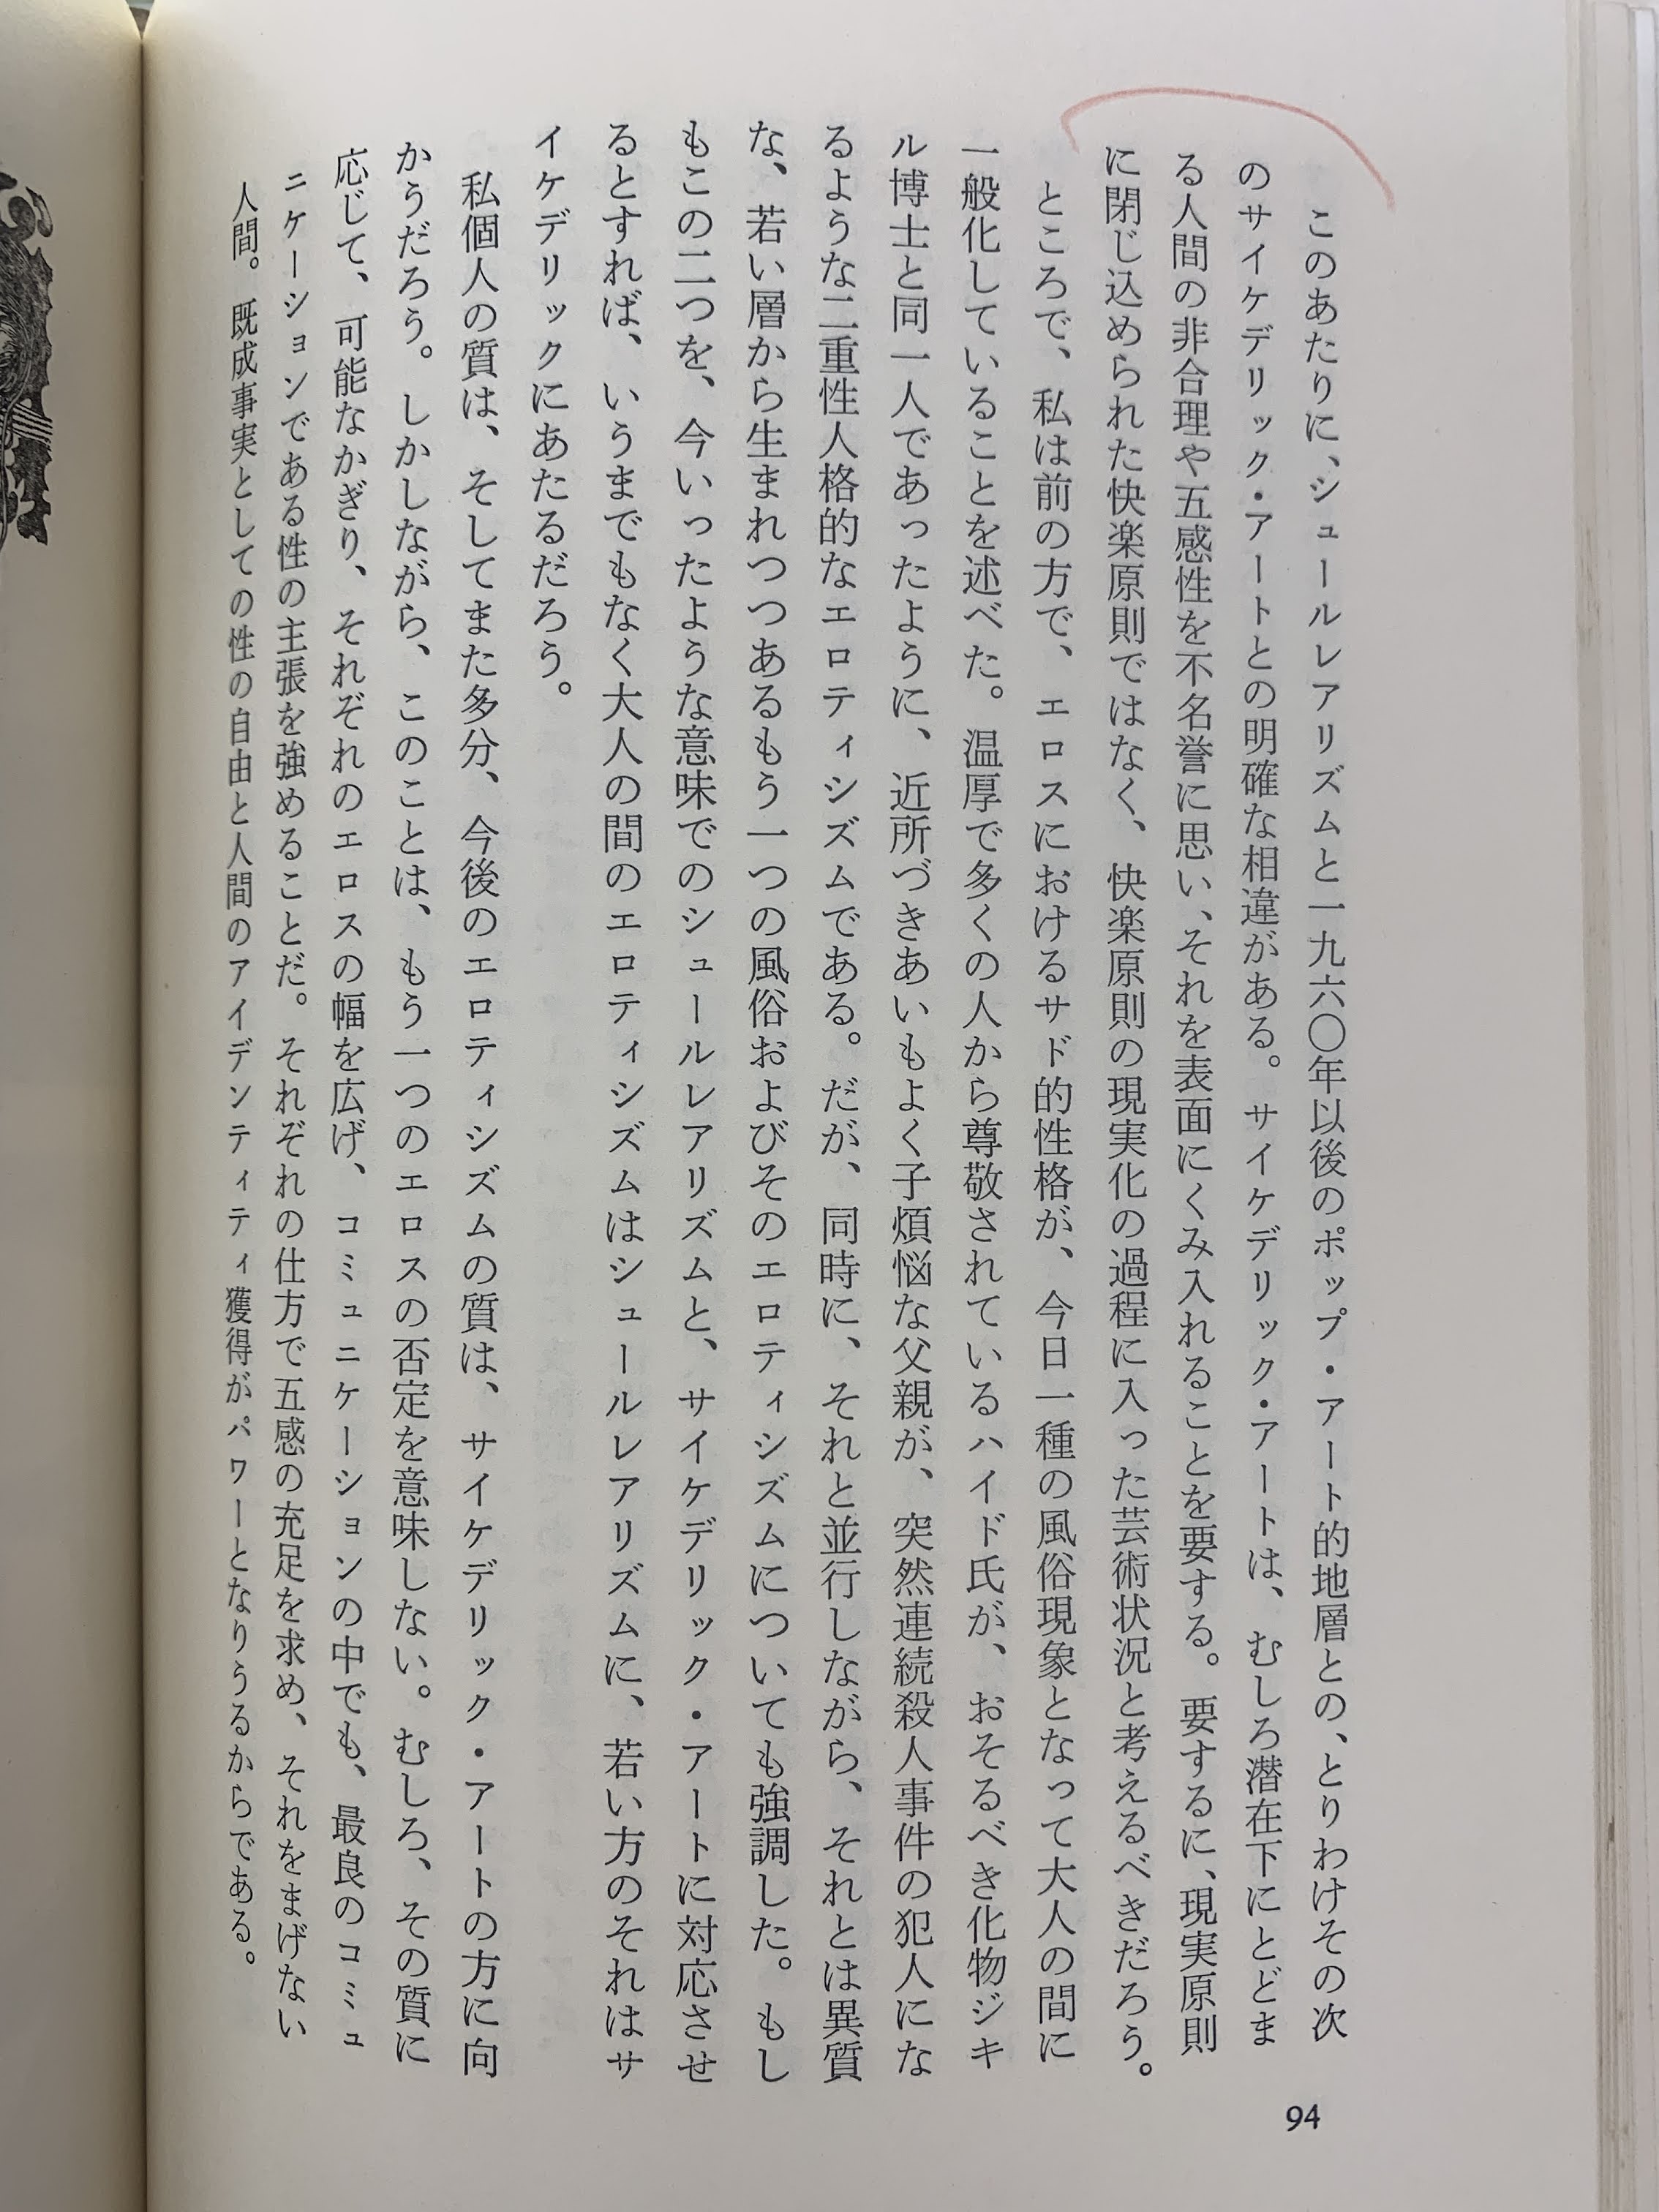 このあたりに、シュールレアリズムと一九六〇年以後のポップ・アート的地層との、とりわけその次
のサイケデリック・アートとの明確な相違がある。サイケデリック・アートは、むしろ潜在下にとどま
る人間の非合理や五感性を不名誉に思い、それを表面にくみ入れることを要する。要するに、現実原則
に閉じ込められた快楽原則ではなく、快楽原則の現実化の過程に入った芸術状況と考えるべきだろう。
ところで、私は前の方で、エロスにおけるサド的性格が、今日一種の風俗現象となって大人の間に
一般化していることを述べた。温厚で多くの人から尊敬されているハイド氏が、おそるべき化物ジキ
ル博士と同一人であったように、近所づきあいもよく子煩悩な父親が、突然連続殺人事件の犯人にな
るような二重性人格的なエロティシズムである。だが、同時に、それと並行しながら、それとは異質
な、若い層から生まれつつあるもう一つの風俗およびそのエロティシズムについても強調した。もし
もこの二つを、今いったような意味でのシュールレアリズムと、サイケデリック・アートに対応させ
るとすれば、いうまでもなく大人の間のエロティシズムはシュールレアリズムに、若い方のそれはサ
イケデリックにあたるだろう。
私個人の質は、そしてまた多分、今後のエロティシズムの質は、サイケデリック・アートの方に向
かうだろう。しかしながら、このことは、もう一つのエロスの否定を意味しない。むしろ、その質に
応じて、可能なかぎり、それぞれのエロスの幅を広げ、コミュニケーションの中でも、最良のコミュ
ニケーションである性の主張を強めることだ。それぞれの仕方で五感の充足を求め、それをまげない
人間。既成事実としての性の自由と人間のアイデンティティ獲得がパワーとなりうるからである。
94